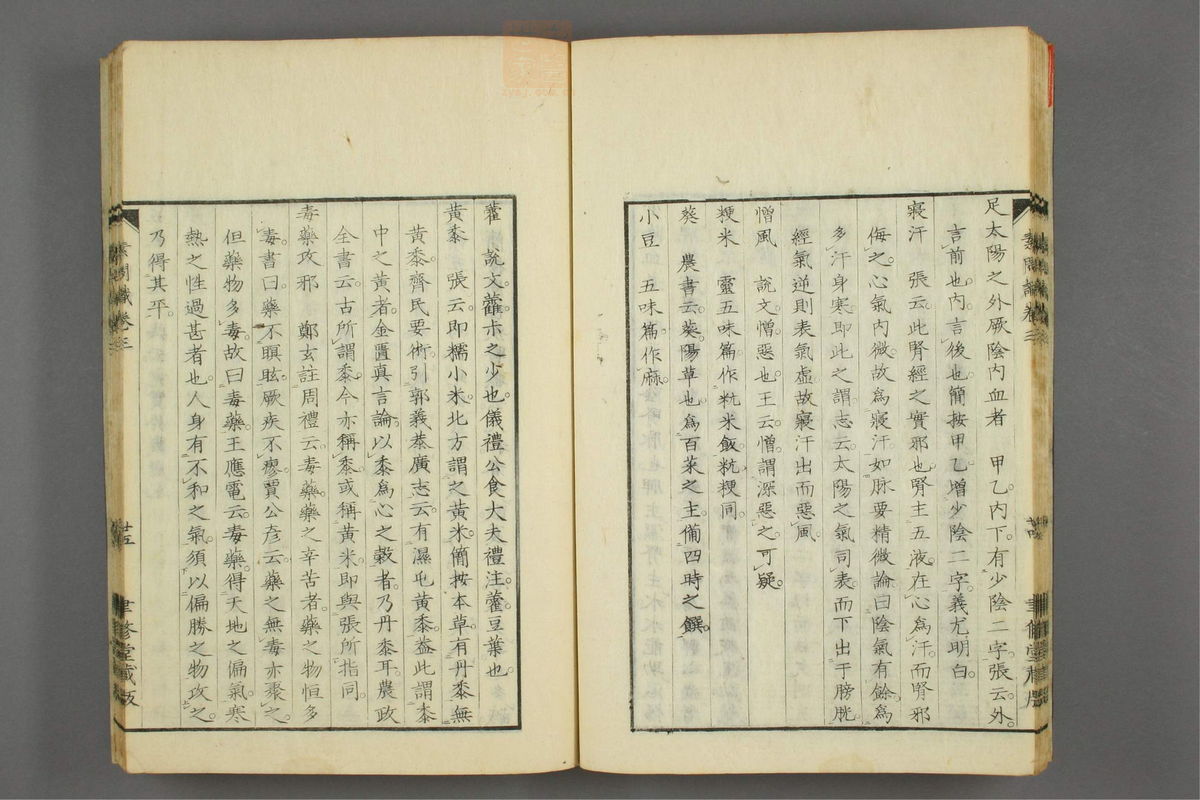 足太陽之外厥陰內血者　甲乙內下。有少陰二字。張云。外。
言前也。內。言後也。簡按甲乙增少陰二字。義尤明白。
寢汗　張云。此腎經之實邪也。腎主五液。在心為汗。而腎邪
侮之。心氣內微。故為寢汗。如脉要精微論曰。陰氣有餘。為
多汗身寒。即此之謂。志云。太陽之氣司表。而下出于膀胱
經氣逆則表氣虛。故寢汗出而惡風。
憎風　說文。憎惡也。王云。憎謂深惡之。可疑。
粳米　靈五味篇。作秔米飯。秔粳同。
葵　農書云。葵。陽草也。為百菜之主。備四時之饌。
小豆　五味篇。作麻。
藿　說文。藿。尗之少也。儀禮公食大夫禮注。藿。豆葉也。
黃黍　張云。即糯小米。北方謂之黃米。簡按本草。有丹黍。無
黃黍。齊民要術。引郭義恭廣志云。有濕屯黃黍。蓋此謂黍
中之黃者。金匱真言論。以黍為心之穀者。乃丹黍耳。農政
全書云。古所謂黍。今亦稱黍。或稱黃米。即與張所指同。
毒藥攻邪　鄭玄註周禮云。毒藥。藥之辛苦者。藥之物恒多
毒。書曰。藥不瞑眩。厥疾不瘳。賈公彥云。藥之無毒。亦聚之。
但藥物多毒。故曰毒藥。王應電云。毒藥。得天地之偏氣。寒
熱之性過甚者也。人身有不和之氣。須以偏勝之物攻之。
乃得其平。
素問識卷三
廿五
聿修堂藏版